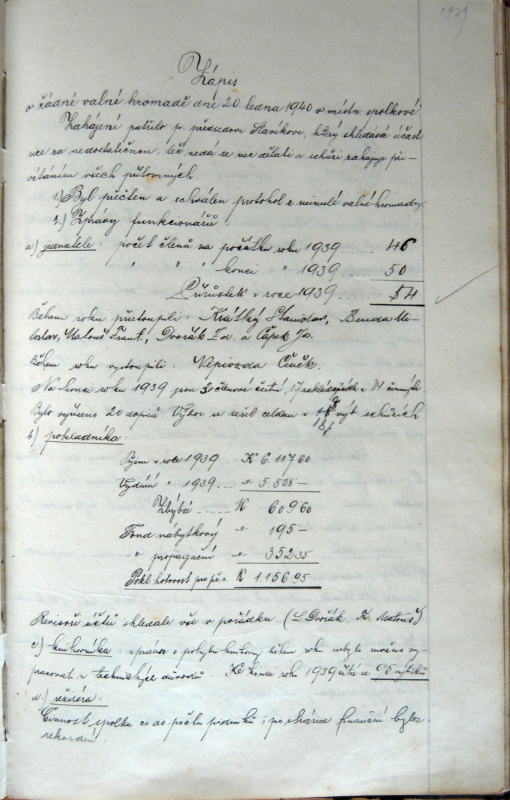 1939
Zápis
o řádné valné hromadě dne 20. ledna 1940 v místn. spolkové
Zahájení patřilo p. předsedovi Slavíkovi, který shledává účast
sice za nedostatečnou, leč nedá se nic dělati a schůzi zahajuje při-
vítáním všech přítomných.
1.) Byl přečten a schválen protokol z minulé valné hromady.
2.) Zprávy funkcionářů:
a) jednatele: počet členů na počátku roku 1939 ...... 46
" " " konci " 1939 ..... 50
Přírůstek v roce 1939 ..... 4
Během roku přistoupili: Krátký Stanislav, Benda Mi-
loslav, Matouš Frant., Dvořák Zd. a Čápek Jo.
Během roku vystoupili: Nepivoda Čeněk.
Na konci roku 1939 jsou 3 členové čestní, 17 zakládajících a činných.
Bylo vyřízeno 20 dopisů. Výbor se sešel celkem v výb. schůzích
18
b) pokladníka:
Příjem v roce 1939 K 6.117 60
Vydání " 1939 .... " 5.508 -
Zbývá ...... K 609 60
Fond nábytkový " 195 -
" propagační " 352 35
Pokl. hotovost K 1.156 95
Revisoři účtů shledali vše v pořádku (L. Dvořák, Matouš)
c.) knihovníka: zpráva o pohybu knihovny během roku nebylo možno vy-
pracovat z technických důvodů. Ke konci roku 1939 čítá se
d.) režiséra:
Činnost spolku co do počtu podniků i po stránce finanční byla
rekordní.